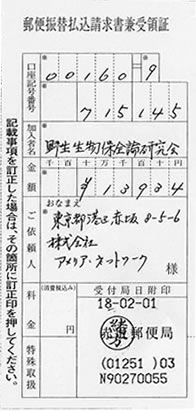 郵便振替払込請求書兼受領証
口座記号番号
00160 9
715145
加入者名
野生生物保全論研究会
金額
千 百 十 万 千 百 十 円
¥13934
ご依頼人
おなまえ
東京都港区赤坂8-5-6
株式会社
アメリア・ネットワーク
様
料金
(消費税込み)
特殊取扱
受付局日附印
18-02-01
郵便局
(01251)03
N90270055
記載事項を訂正した場合は、その箇所に訂正印を押してください。